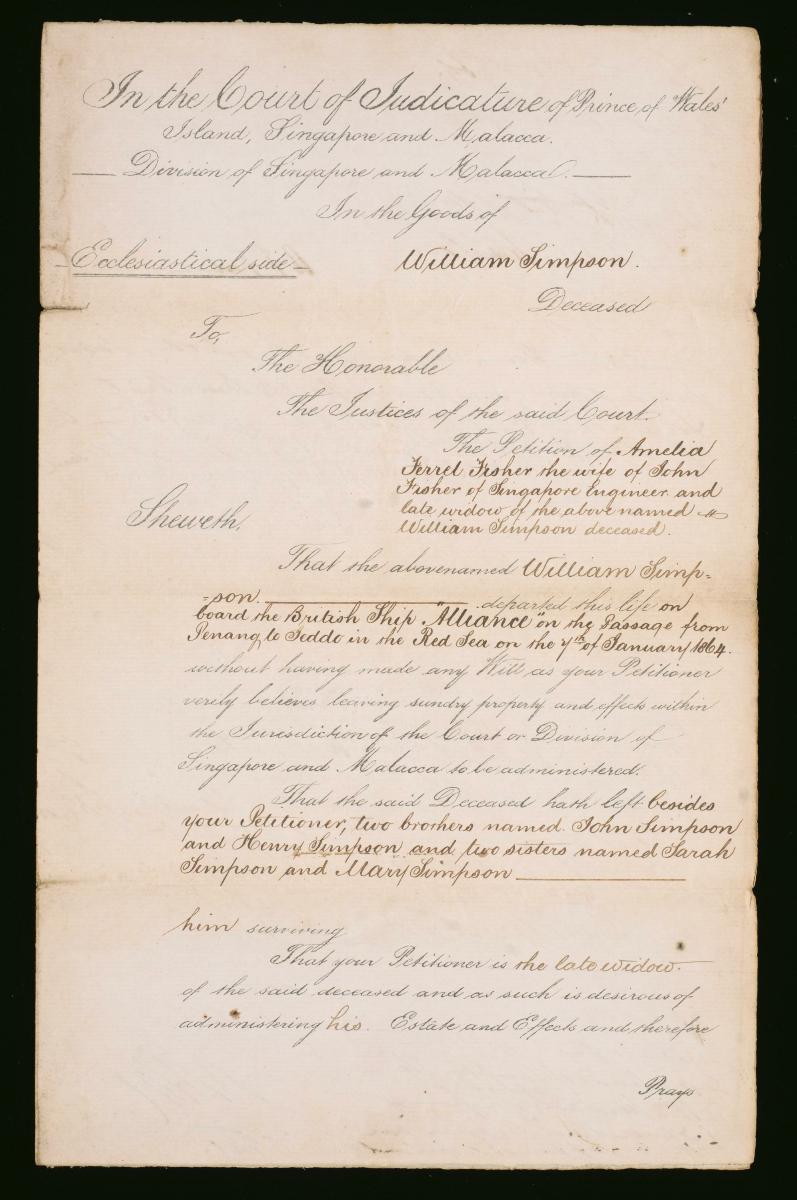 In the Court of Judicature of Prince of Wales'
Island, Singapore and Malacca.
Division of Singapore and Malacca.
In the Goods of
Ecclesiastical side
William Simpson.
Deceased
To,
The Honorable
The Justices of the said Court.
The Petition of Amelia
Ferrel Fisher the wife of John
Fisher of Singapore Engineer and
late widow of the above named
William Simpson deceased.
Sheweth.
That the abovenamed William Simp-
-son. departed this life on
board the British Ship "Alliance" on the Passage from
Penang to Jeddo in the Red Sea on the 7th of January 1864.
without having made any Will as your Petitioner
verily believes leaving sundry property and effects within
the Jurisdiction of the Court or Division of
Singapore and Malacca to be administered.
That the said Deceased hath left besides
your Petitioner, two brothers named John Simpson
and Henry Simpson and two sisters named Sarah
Simpson and Mary Simpson
him surviving
That your Petitioner is the late widow.
of the said deceased and as such is desirous of
administering his. Estate and Effects and therefore
Prays